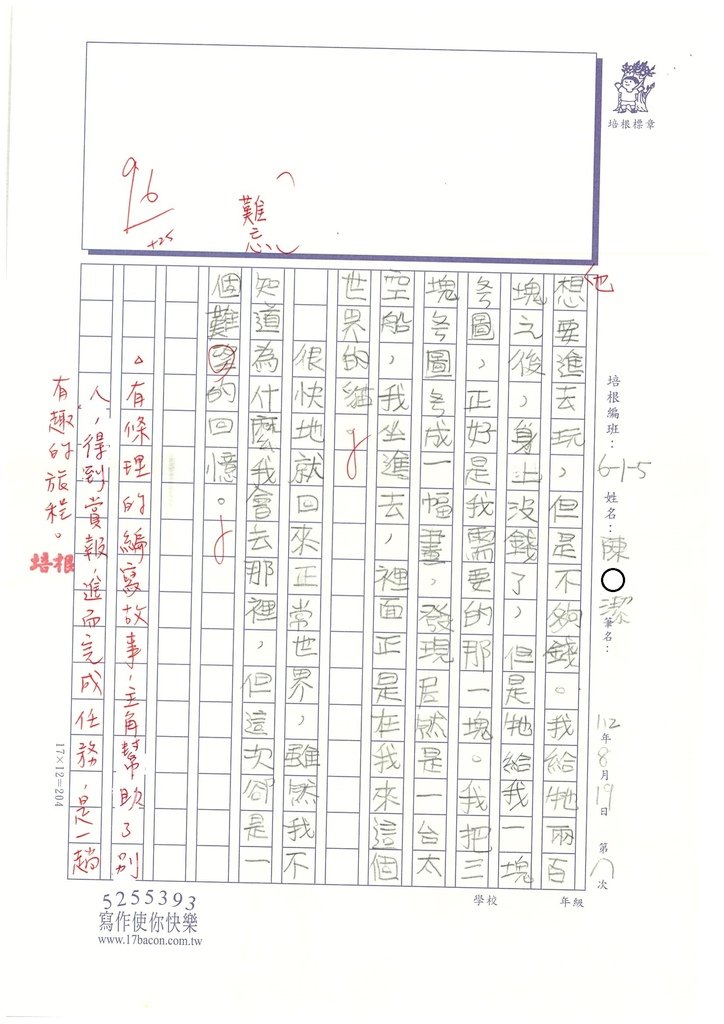 培根標章
96
+25
難忘
他
培根編班：6-1-5 姓名：陳 潔 筆名：
112年8月19日 第 次
學校 年級
想要進去玩，但是不夠錢。我給牠兩百
塊之後，身上沒錢了，但是牠給我一塊
圖，正好是我需要的那一塊。我把三
塊 圖 成一幅畫，發現居然是一台太
空船，我坐進去，裡面正是在我來這個
世界的貓。
很快地就回來正常世界，雖然我不
知道為什麼我會去那裡，但這次卻是一
個難 的回憶。
有條理的編寫故事，主角幫助了別
人，得到賞報，進而完成任務，是一趟
有趣的旅程。
培根
17×12=204
5255393
寫作使你快樂
www.17bacon.com.tw